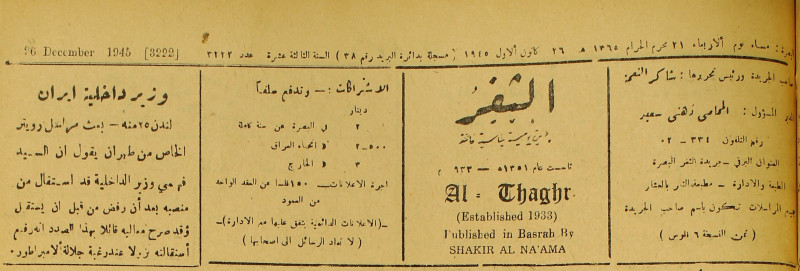 البصرة : مساء يوم الاربعاء ٢١ محرم الحرام ١٣٦٥ هـ ٢٦ كانون الاول ١٩٤٥ ( مسجلة بدائرة البريد رقم ٣٨ ) السنة الثالثة عشرة عدد ٣٢٢٢
26 December 1945 [3222]
صاحب الجريدة ورئيس تحريرها : شاكر النعمة
المسؤول : المحامي زهني سعيد
رقم التلفون ٣٣٤ — ٠٢
العنوان البرقي — جريدة الثغر البصرة
الطبعة والادارة — مطبعة الثغر بالعشار
الراسلات تكون باسم صاحب الجريدة
( ثمن النسخة ٦ فلوس )
الثغر
جريدة يومية سياسية
تأسست عام ١٣٥١ هـ — ٩٣٣ م
Al - Thaghr
(Established 1933)
Published in Basrah By
SHAKIR AL NA'AMA
الاشتراكات : — وتدفع سلفاً
دينار
٢ في البصرة عن سنة كاملة
٥٠٠-٢ انحاء العراق
٣ في الخارج
اجرة الاعلانات — ١٥٠ فلسا عن العقد الواحد
من العمود
— (الاعلانات الدائمية يتفق عليها مع الادارة) —
( لا تعاد الرسائل الى اصحابها )
وزير داخلية ايران
لندن ٢٥ منه — بعث مراسل رويتر
الخاص من طهران يقول ان السيد
فهمي وزير الداخلية قد استقال من
منصبه بعد أن رفض من قبل ان يستقل
وقد صرح معاليه قائلا بهذا الصدد انه رفع
استقالته نزولا عند رغبة جلالة الامبراطور.